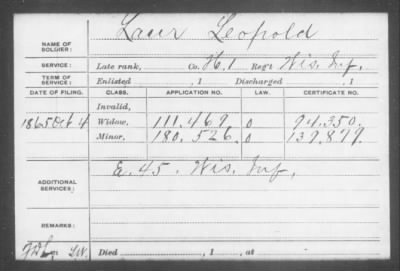 NAME OF SOLDIER: Laur Leopold
SERVICE: Late rank, Co. H. 1 Reg't Wis. Inf.
TERM OF SERVICE: Enlisted , 1 Discharged , 1
DATE OF FILING. CLASS. APPLICATION NO. LAW. CERTIFICATE NO.
Invalid,
1865 Oct 4 Widow, 111.469 0 94.350.
Minor, 180.526. 0 139.879.
ADDITIONAL SERVICES: E. 45. Wis. Inf,
REMARKS:
Died , 1 , at